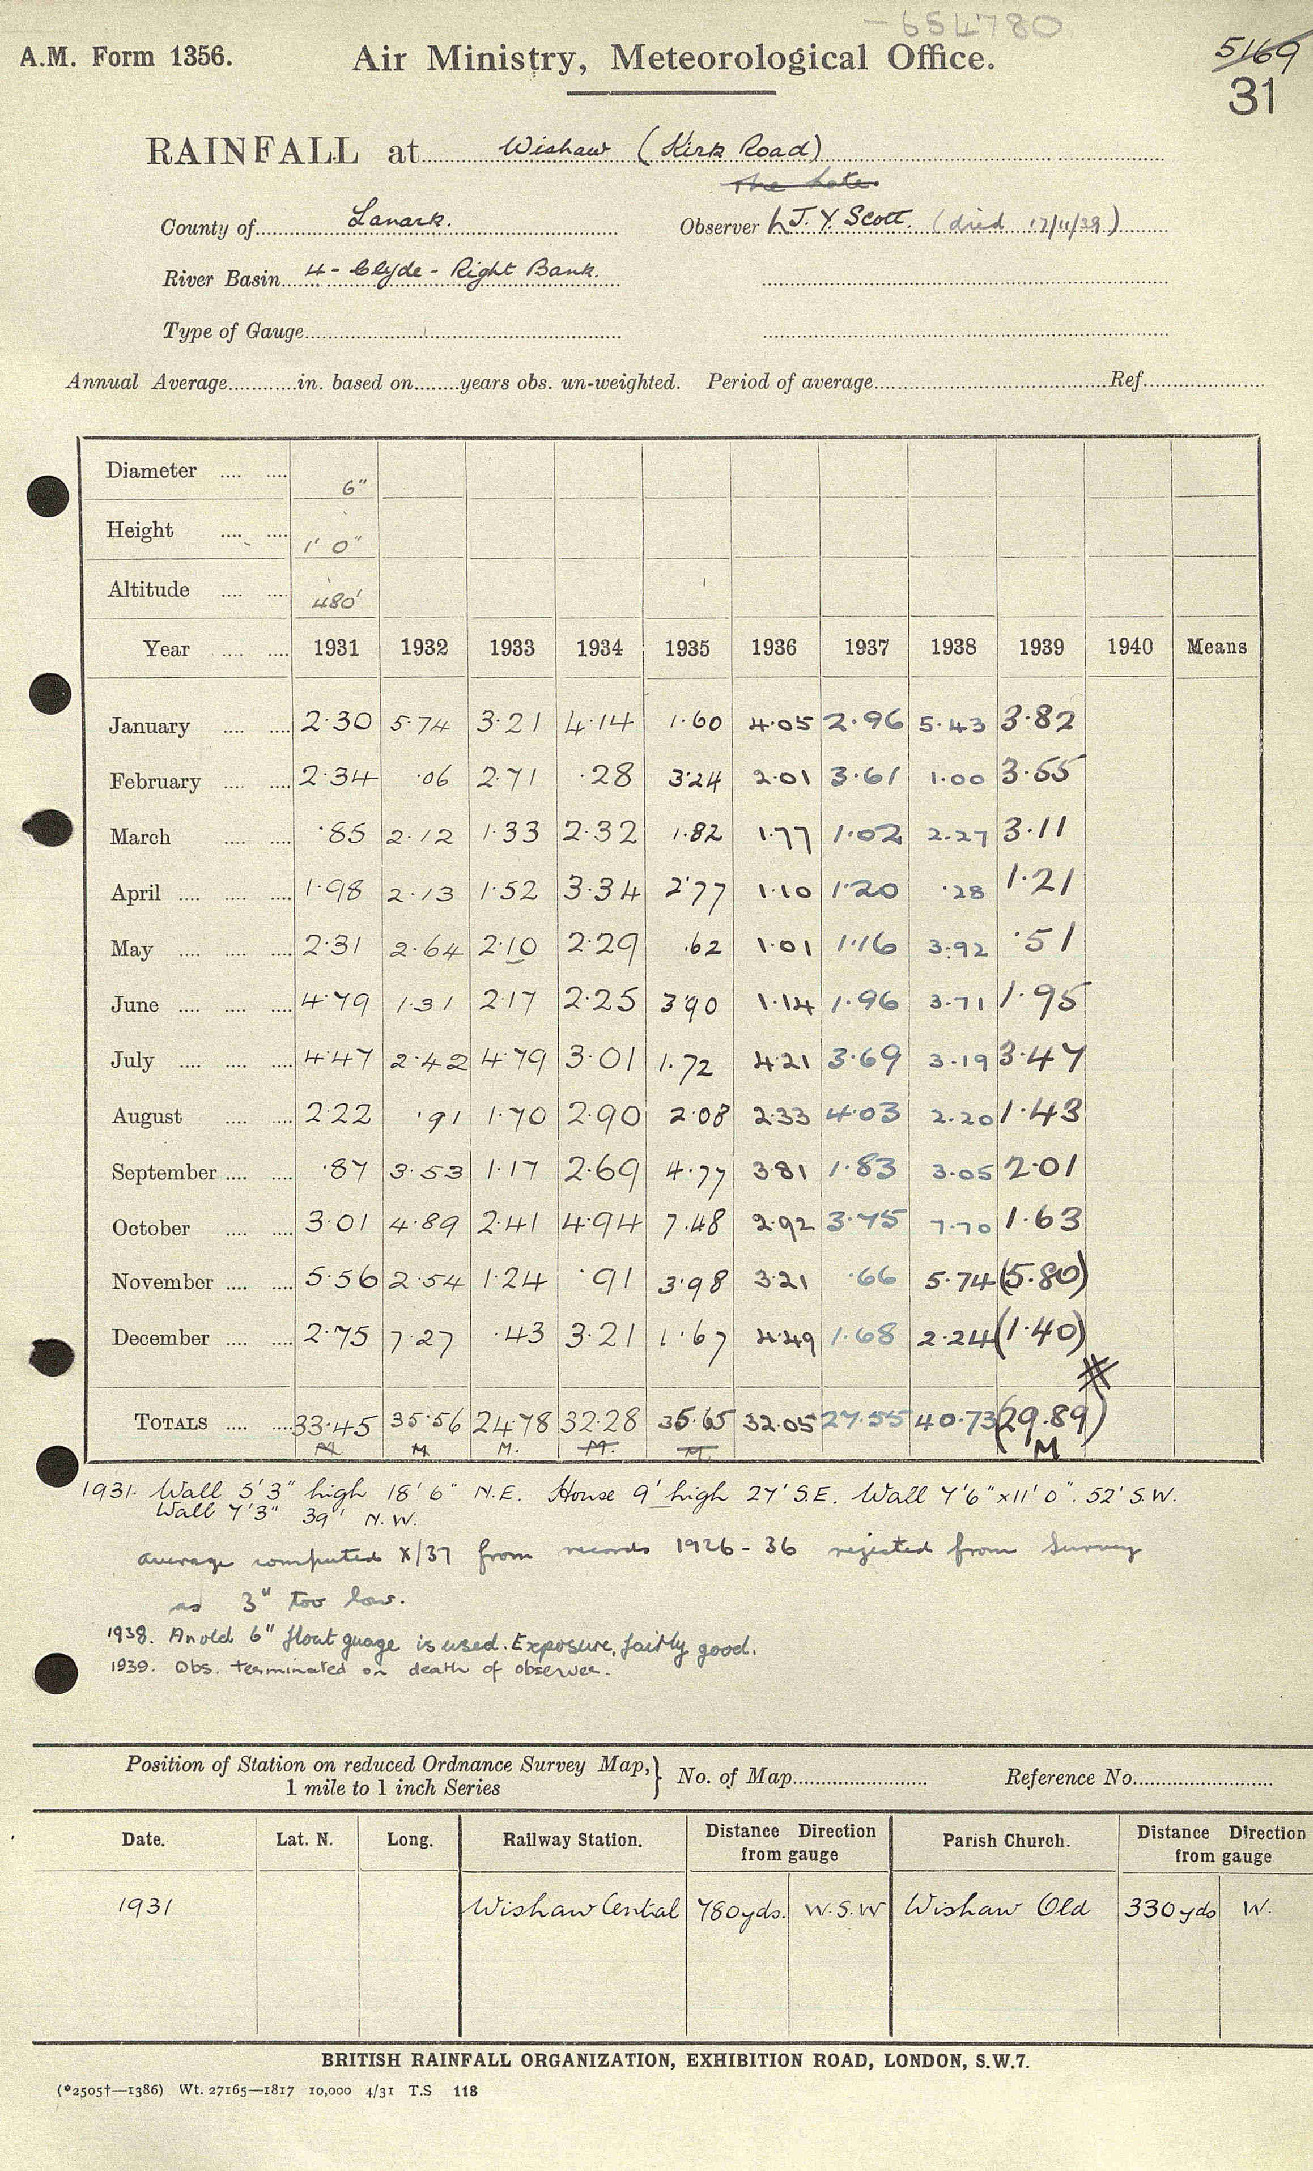 -654780
A.M. Form 1356. Air Ministry, Meteorological Office. 5169
31
RAINFALL at Wishaw (Kirk Road)
The late
County of Lanark. Observer J. Y. Scott. (died 17/11/39)
River Basin 4 - Clyde - Right Bank.
Type of Gauge
Annual Average in. based on years obs. un-weighted. Period of average Ref.
Diameter 6"
Height 1' 0"
Altitude 480'
Year 1931 1932 1933 1934 1935 1936 1937 1938 1939 1940 Means
January 2.30 5.74 3.21 4.14 1.60 4.05 2.96 5.43 3.82
February 2.34 .06 2.71 .28 3.24 2.01 3.61 1.00 3.55
March .85 2.12 1.33 2.32 1.82 1.77 1.02 2.27 3.11
April 1.98 2.13 1.52 3.34 2.77 1.10 1.20 .28 1.21
May 2.31 2.64 2.10 2.29 .62 1.01 1.16 3.92 .51
June 4.79 1.31 2.17 2.25 3.90 1.14 1.96 3.71 1.95
July 4.47 2.42 4.79 3.01 1.72 4.21 3.69 3.19 3.47
August 2.22 .91 1.70 2.90 2.08 2.33 4.03 2.20 1.43
September .87 3.53 1.17 2.69 4.77 3.81 1.83 3.05 2.01
October 3.01 4.89 2.41 4.94 7.48 2.92 3.75 7.70 1.63
November 5.56 2.54 1.24 .91 3.98 3.21 .66 5.74 (5.80)
December 2.75 7.27 .43 3.21 1.67 4.49 1.68 2.24 (1.40)
#
TOTALS 33.45 35.56 24.78 32.28 35.65 32.05 27.55 40.73 (29.89)
M M M. M. M. M
1931. Wall 5'3" high 18'6" N.E. House 9' high 27' S.E. Wall 7'6" x 11'0". 52' S.W.
Wall 7'3" 39' N.W.
average computed X/37 from records 1926-36 rejected from Survey
as 3" too low.
1938. An old 6" float guage is used. Exposure, fairly good.
1939. Obs. terminated on death of observer.
Position of Station on reduced Ordnance Survey Map, 1 mile to 1 inch Series } No. of Map Reference No.
Date. Lat. N. Long. Railway Station. Distance Direction from gauge Parish Church. Distance Direction from gauge
1931 Wishaw Central 780yds. W.S.W Wishaw Old 330yds W.
BRITISH RAINFALL ORGANIZATION, EXHIBITION ROAD, LONDON, S.W.7.
(*2505†—1386) Wt. 27165—1817 10,000 4/31 T.S 118